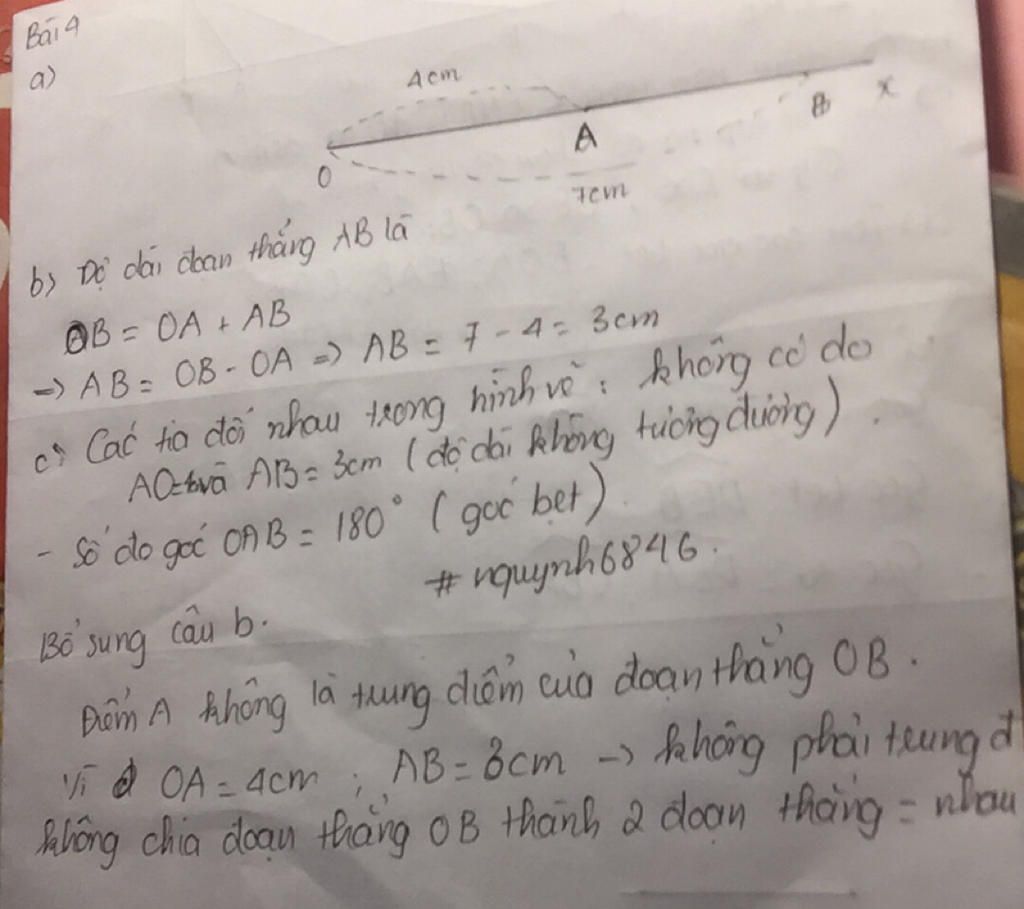 Bài 4
a)
4cm
O
A
B
x
7cm
b) Độ dài đoạn thẳng AB là
OB = OA + AB
=> AB = OB - OA => AB = 7 - 4 = 3cm
c) Các tia đối nhau trong hình vẽ: không có do
AO và AB = 3cm (độ dài không tương đương).
- Số đo góc OAB = 180° (góc bẹt)
# nquynh6846.
Bổ sung câu b.
Điểm A không là trung điểm của đoạn thẳng OB.
Vì OA = 4cm; AB = 3cm -> không phải trung đ
không chia đoạn thẳng OB thành 2 đoạn thẳng = nhau